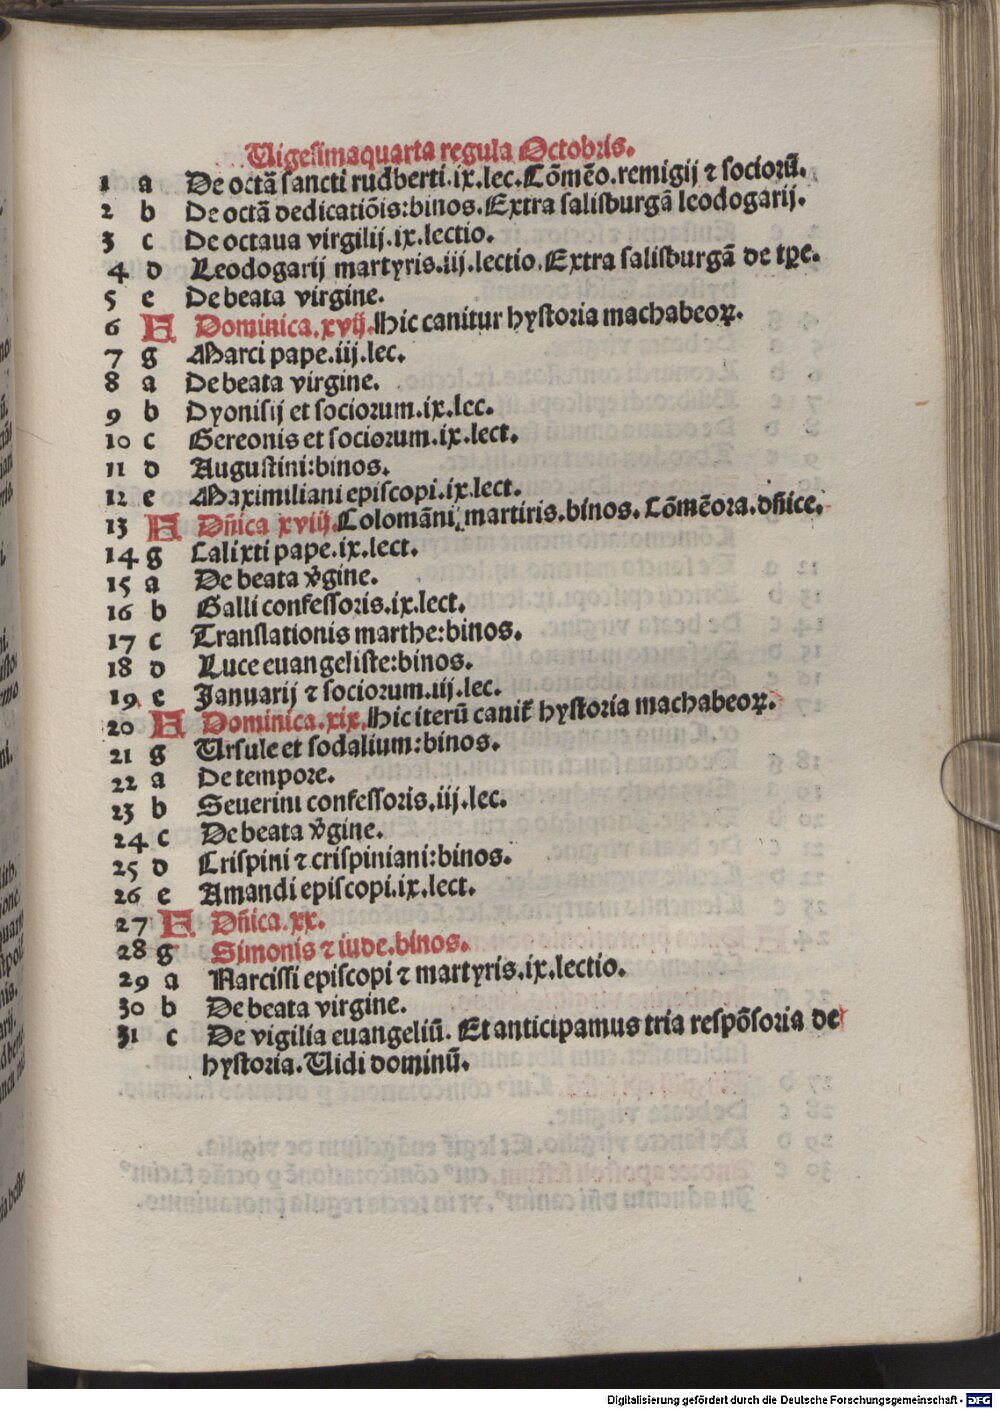 Uigesimaquarta regula Octobris.
1 a De octã sancti rudberti.ix.lec.Cõmẽo.remigij ⁊ sociorũ.
2 b De octã dedicatiõis:binos.Extra salisburgã leodogarij.
3 c De octaua virgilij.ix.lectio.
4 d Leodogarij martyris.iij.lectio.Extra salisburgã de tp̃e.
5 e De beata virgine.
6 F Dominica.xvij.Hic canitur hystoria machabeoꝝ.
7 g Marci pape.iij.lec.
8 a De beata virgine.
9 b Dyonisij et sociorum.ix.lec.
10 c Gereonis et sociorum.ix.lect.
11 d Augustini:binos.
12 e Maximiliani episcopi.ix.lect.
13 F Dñica xviij.Colomãni martiris.binos.Cõmẽora.dñice.
14 g Calixti pape.ix.lect.
15 a De beata v̾gine.
16 b Galli confessoris.ix.lect.
17 c Translationis marthe:binos.
18 d Luce euangeliste:binos.
19 e Januarij ⁊ sociorum.iij.lec.
20 F Dominica.xix.Hic iterũ canit̃ hystoria machabeoꝝ.
21 g Ursule et sodalium:binos.
22 a De tempore.
23 b Seuerini confessoris.iij.lec.
24 c De beata v̾gine.
25 d Crispini ⁊ crispiniani:binos.
26 e Amandi episcopi.ix.lect.
27 F Dñica.xx.
28 g Simonis ⁊ iude.binos.
29 a Narcissi episcopi ⁊ martyris.ix.lectio.
30 b De beata virgine.
31 c De vigilia euangeliũ. Et anticipamus tria respõsoria de
hystoria.Uidi dominũ.
Digitalisierung gefördert durch die Deutsche Forschungsgemeinschaft - DFG